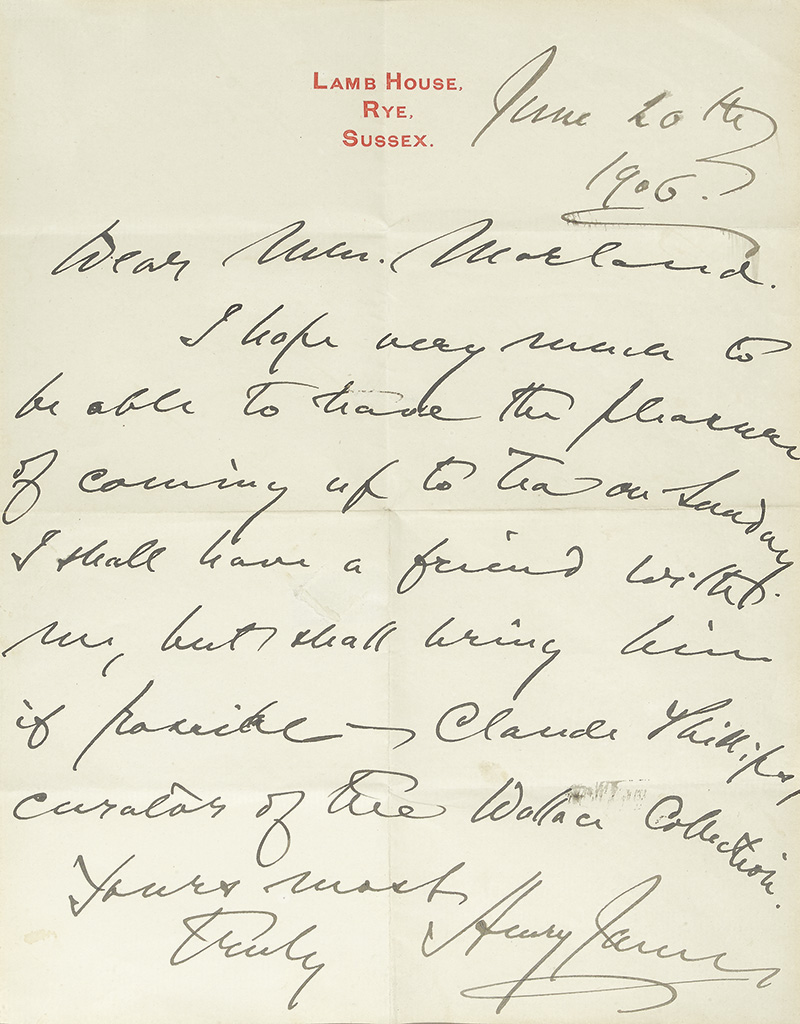 LAMB HOUSE,
RYE,
SUSSEX.
June 20th
1906.
Dear Mrs. Morland.
I hope very much to
be able to have the pleasure
of coming up to tea on Sunday
I shall have a friend with
me, but shall bring him
if possible — Claude Phillips,
curator of the Wallace Collection.
Yours most
truly Henry James